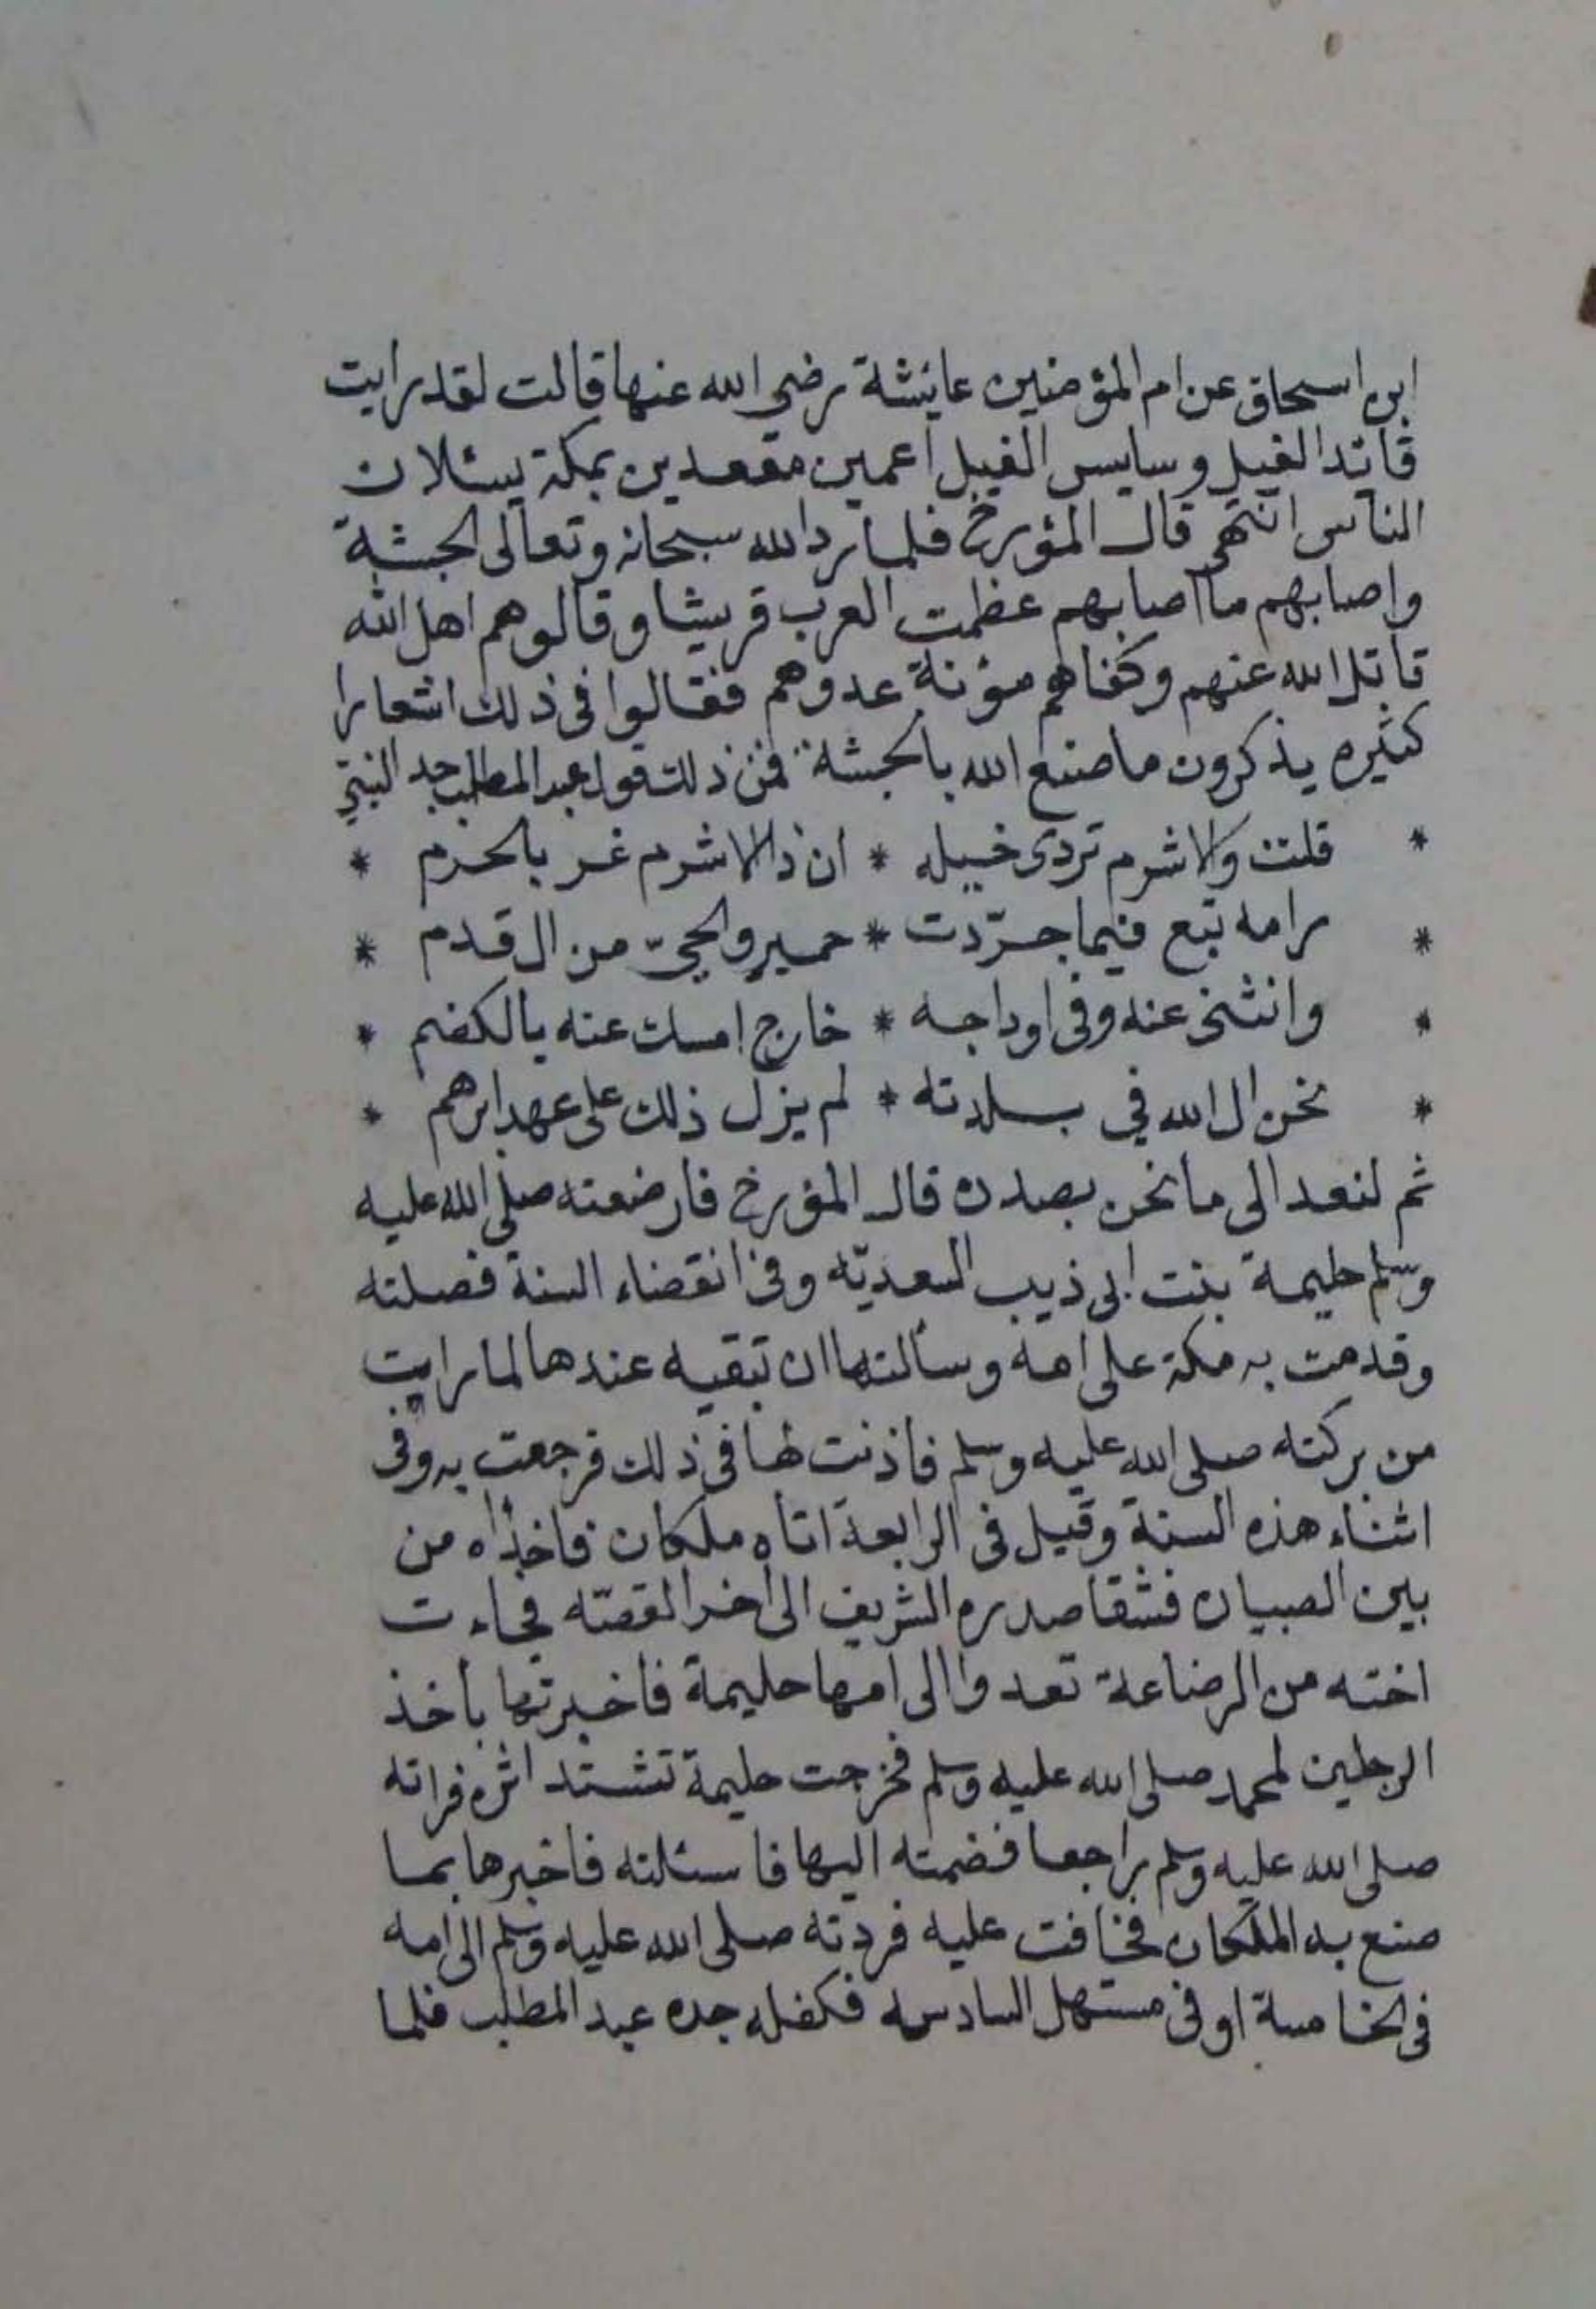 ابن اسحاق عن ام المؤمنين عايشة رضي الله عنها قالت لقد رايت
قائد الفيل وسايس الفيل اعمين مقعدين بمكة يسئلان
الناس انتهى قال المؤرخ فلما رد الله سبحانه وتعالى الحبشة
واصابهم ما اصابهم عظمت العرب قريشا وقالوهم اهل الله
قاتل الله عنهم وكفاهم مؤنة عدوهم فقالوا في ذلك اشعارا
كثيره يذكرون ما صنع الله بالحبشة فمن ذلك قول عبد المطلب جد النبي
* قلت والاشرم تردى خيله * ان ذا الاشرم غر بالحرم *
* رامه تبع فيما جرّدت * حمير والحيّ من ال قدم *
* وانثنى عنه وفى اوداجه * خارج امسك عنه بالكضم *
* نحن ال الله في بلدته * لم يزل ذلك على عهد ابرهم *
ثم لنعد الى ما نحن بصدده قال المؤرخ فارضعته صلى الله عليه
وسلم حليمة بنت ابى ذيب السعديّه وفى انقضاء السنة فصلته
وقدمت به مكة على امه وسألتها ان تبقيه عندها لما رايت
من بركته صلى الله عليه وسلم فاذنت لها في ذلك فرجعت به وفى
اثناء هذه السنة وقيل فى الرابعة اتاه ملكان فاخذاه من
بين الصبيان فشقا صدره الشريف الى اخر القصّه فجاءت
اخته من الرضاعة تعدوا الى امها حليمة فاخبرتها باخذ
الرجلين لمحمد صلى الله عليه وسلم فخرجت حليمة تشتد اثره فراته
صلى الله عليه وسلم راجعا فضمته اليها فاسئلته فاخبرها بما
صنع به الملكان فخافت عليه فردته صلى الله عليه وسلم الى امه
فى الخامسة او فى مستهل السادسه فكفله جده عبد المطلب فلما